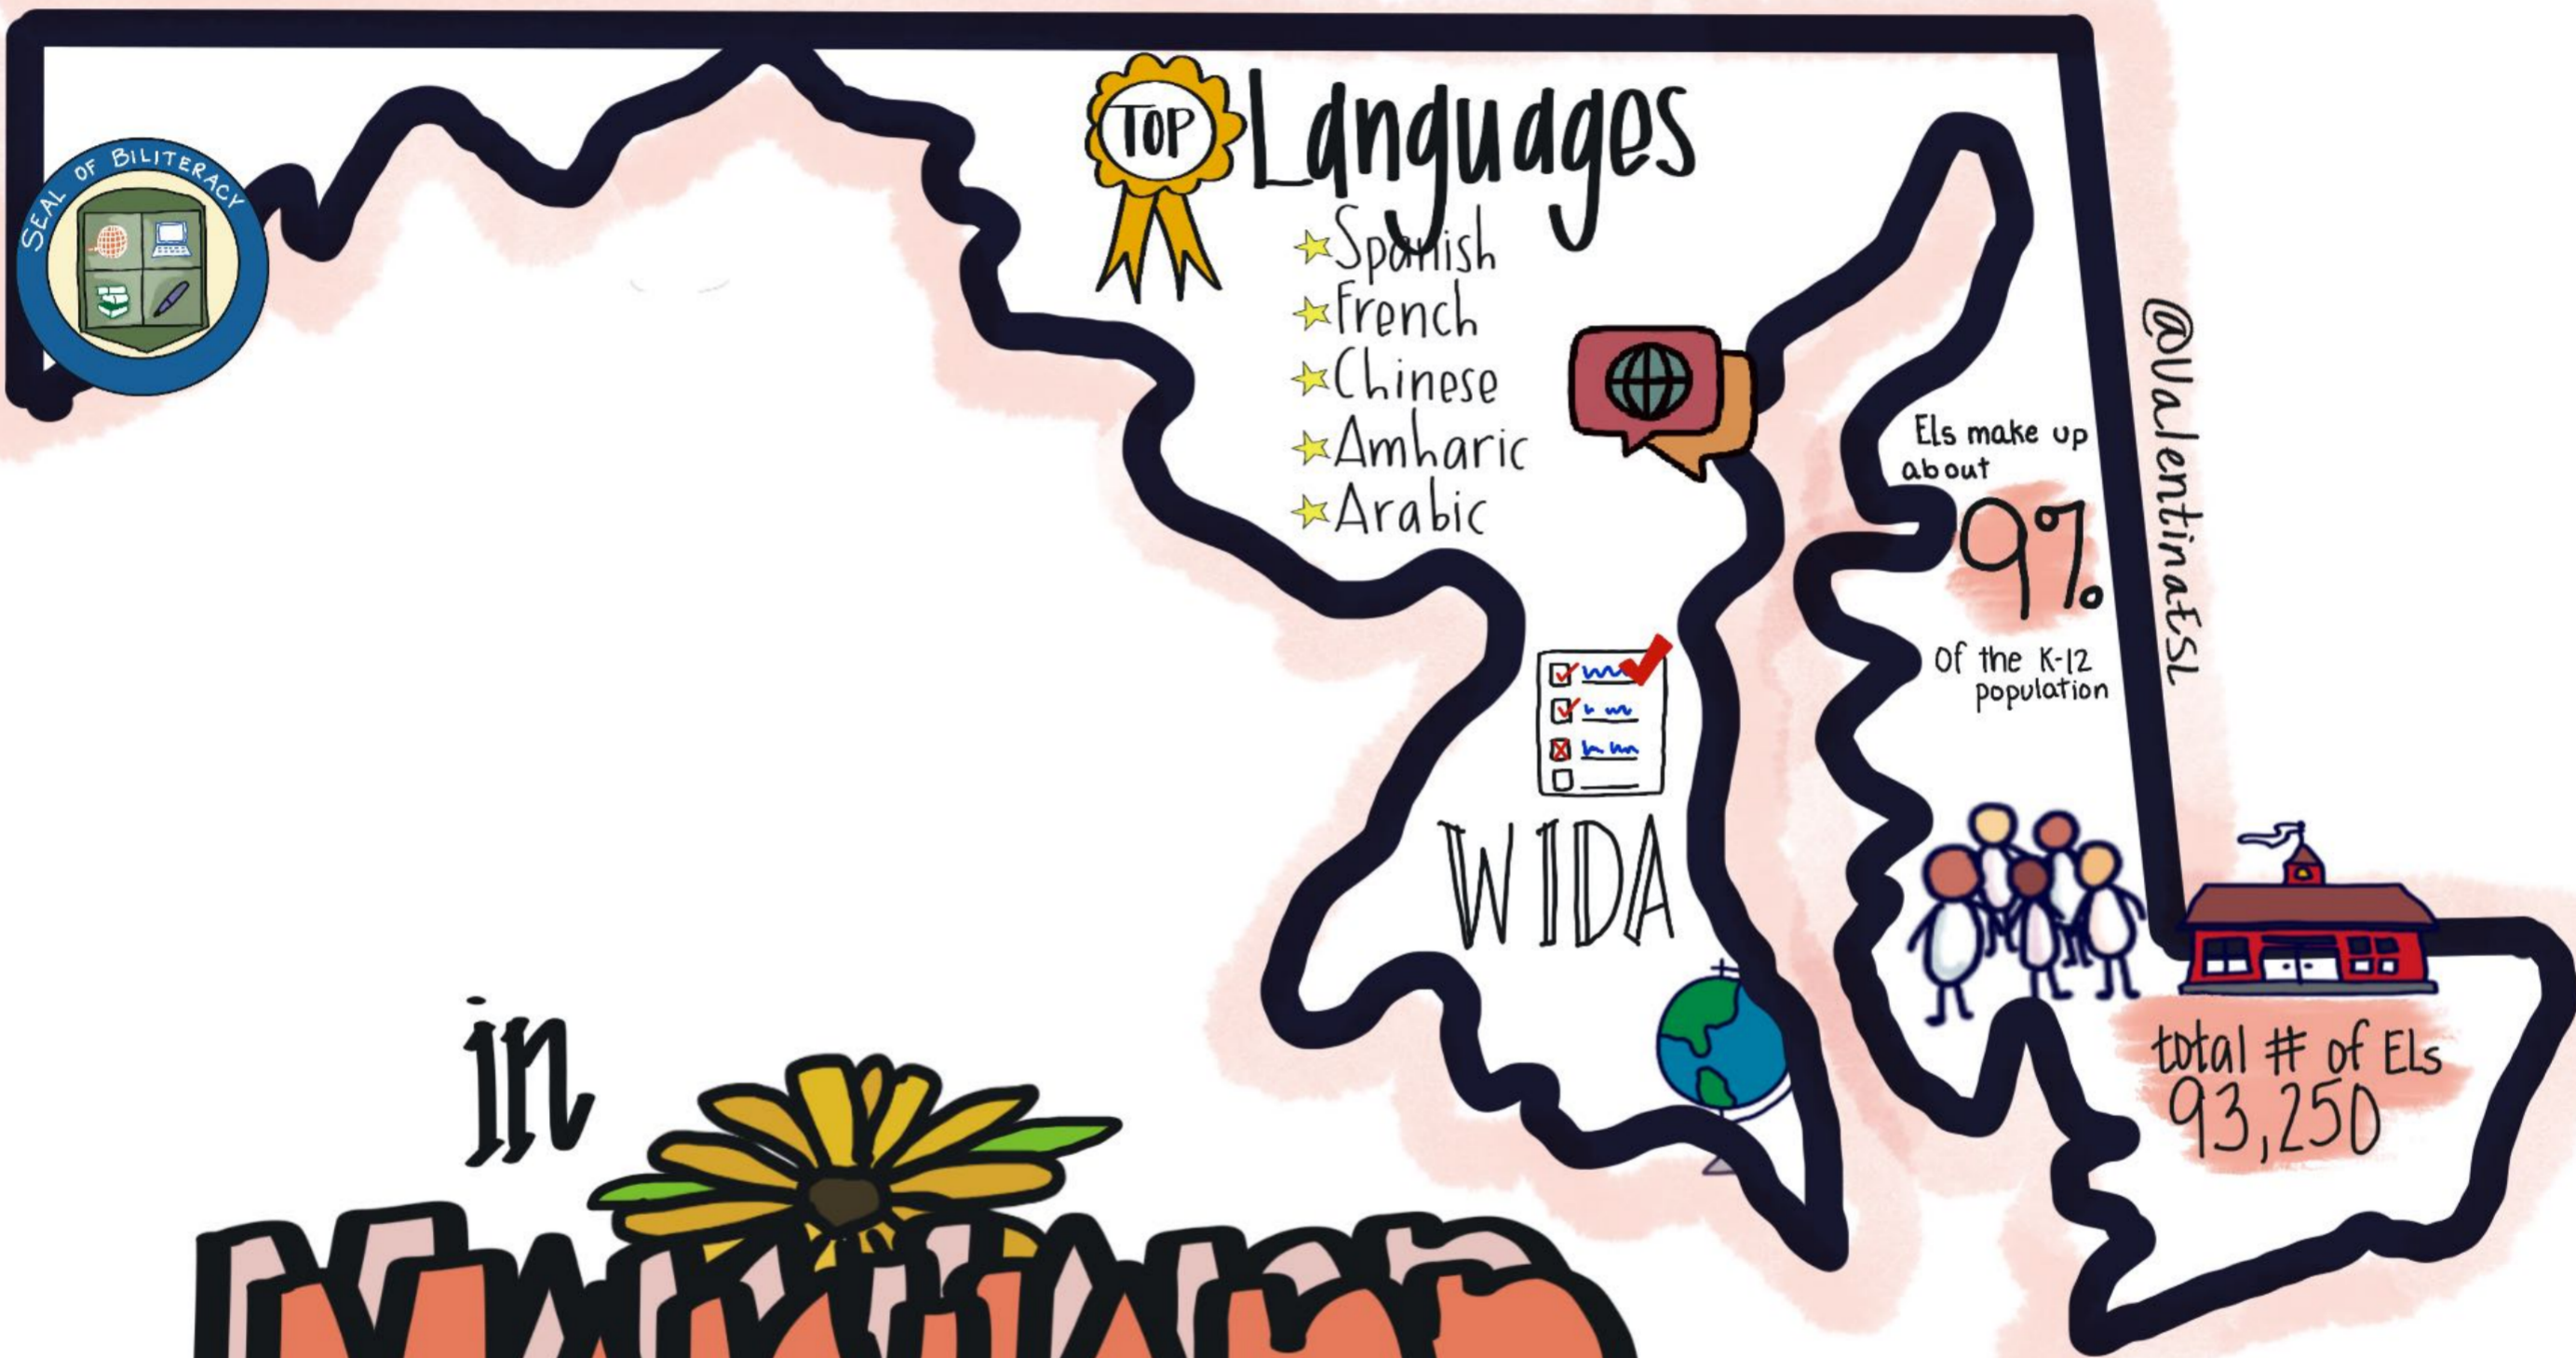 SEAL OF BILITERACY
TOP
Languages
Spanish
French
Chinese
Amharic
Arabic
Els make up
about
9%
of the K-12
population
@ValentinaESL
WIDA
total # of ELs
93,250
in